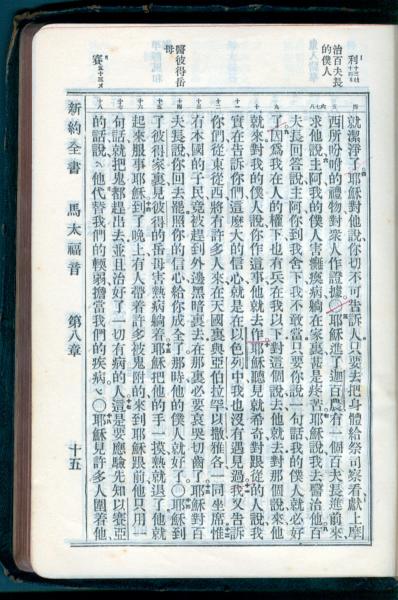 利
治百夫長
的僕人
醫彼得岳
母
賽
四
就潔淨了耶穌對他說你切不可告訴人只要去把身體給祭司察看獻上摩
五
西所吩咐的禮物對衆人作證據〇耶穌進了迦百農有一個百夫長進前來
六七
求他說主阿我的僕人害癱瘓病躺在家裏甚是疼苦耶穌說我去醫治他百
八
夫長回答說主阿你到我舍下我不敢當只要你說一句話我的僕人就必好
九
了因爲我在人的權下也有兵在我以下對這個說去他就去對那個說來他
十
就來對我的僕人說你作這事他就去作耶穌聽見就希奇對跟從的人說我
十一
實在告訴你們這麽大的信心就是在以色列中我也沒有遇見過我又告訴
十二
你們從東從西將有許多人來在天國裏與亞伯拉罕以撒雅各一同坐席惟
十三
有本國的子民竟被趕到外邊黑暗裏去在那裏必要哀哭切齒了耶穌對百
十四
夫長說你回去罷照你的信心給你成全了那時他的僕人就好了〇耶穌到
十五
了彼得家裏見彼得的岳母害熱病躺着耶穌把他的手一摸熱就退了他就
十六
起來服事耶穌到了晚上有人帶着許多被鬼附的來到耶穌跟前他只用一
十七
句話就把鬼都趕出去並且治好了一切有病的人這是要應驗先知以賽亞
十八
的話說他代替我們的輭弱擔當我們的疾病〇耶穌見許多人圍着他
新約全書 馬太福音 第八章 十五